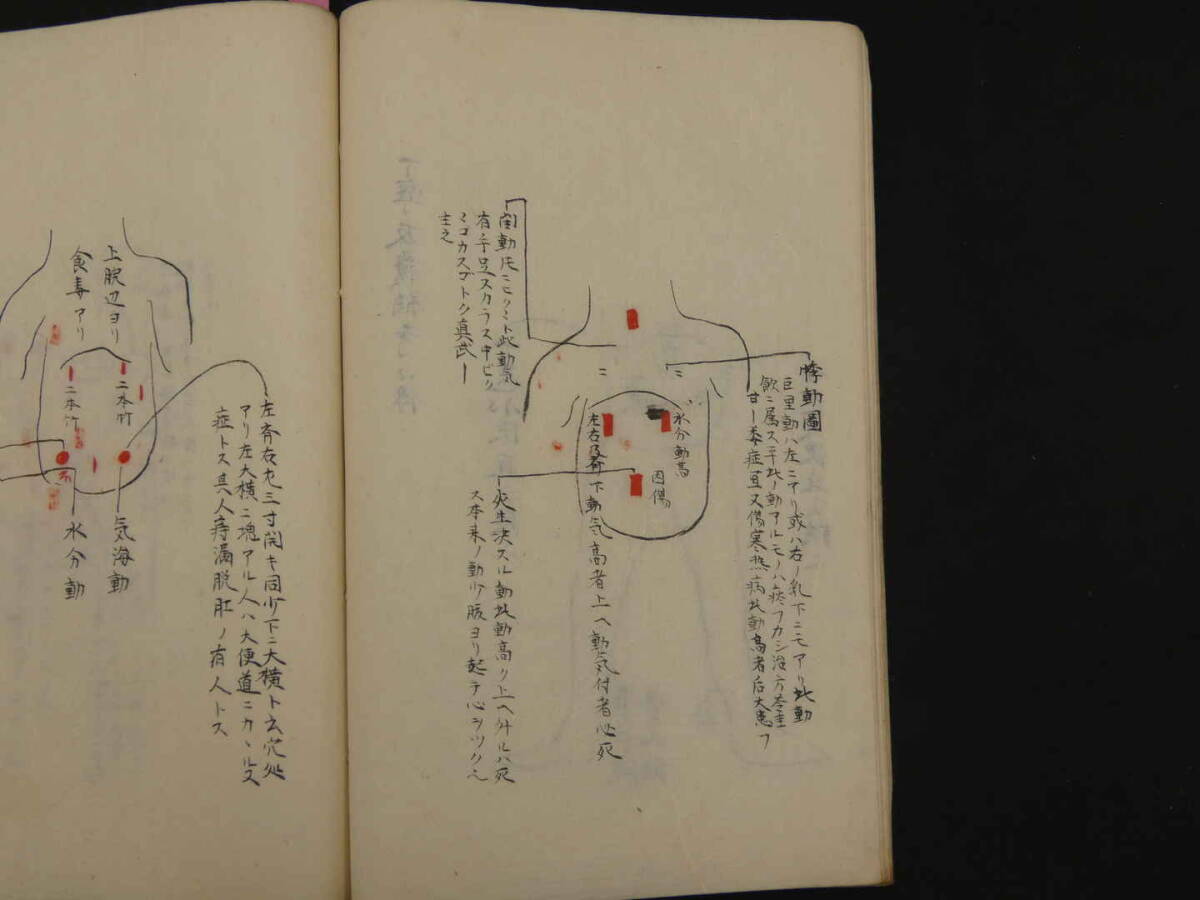 悸動圖
巨里動ハ左ニアリ或ハ右ノ乳下ニモアリ此動
飲ニ属ス平 此ノ動アルモノハ フカシ治方
甘ー 症 又傷寒熱病此動高者后大 フ
水分動高
因傷
左右及臍下動気高者上ヘ動気付者必死
此動気
有 手足スカラス中ビク
ミコカスゴトク真武ー
主之
火生決スル動此動高ク上ヘ升ルハ死
ス本来ノ動少腹ヨリ起テ心ヲツク
左斉右九三寸開キ同少下ニ大横ト云穴処
アリ左大横ニ塊アル人ハ大便道ニカ丶ルス
症トス其人痔漏脱肛ノ有人トス
上脘辺ヨリ
食毒アリ
二本竹
二本竹
気海動
水分動